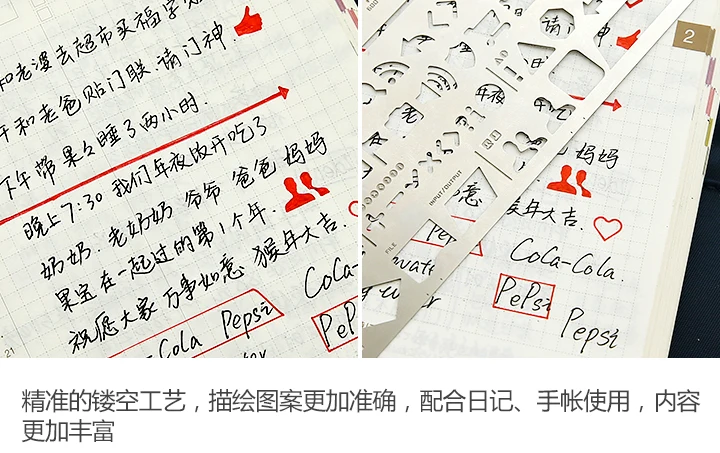 和老婆去超市买福字
和老爸贴门联.请门神.
下午带果果睡了两小时.
晚上7:30 我们年夜饭开吃了
奶奶.老奶奶 爷爷 爸爸 妈妈
果宝在一起过的第1个年.
祝愿大家 万事如意 猴年大吉.
CoCa-
Cola Pepsi
PeP
21
2
请门
年夜
老
INPUT/OUTPUT
FILE
意
妈妈
猴年大吉.
CoCa-Cola.
PePsi
Pepsi
精准的镂空工艺，描绘图案更加准确，配合日记、手帐使用，内容
更加丰富